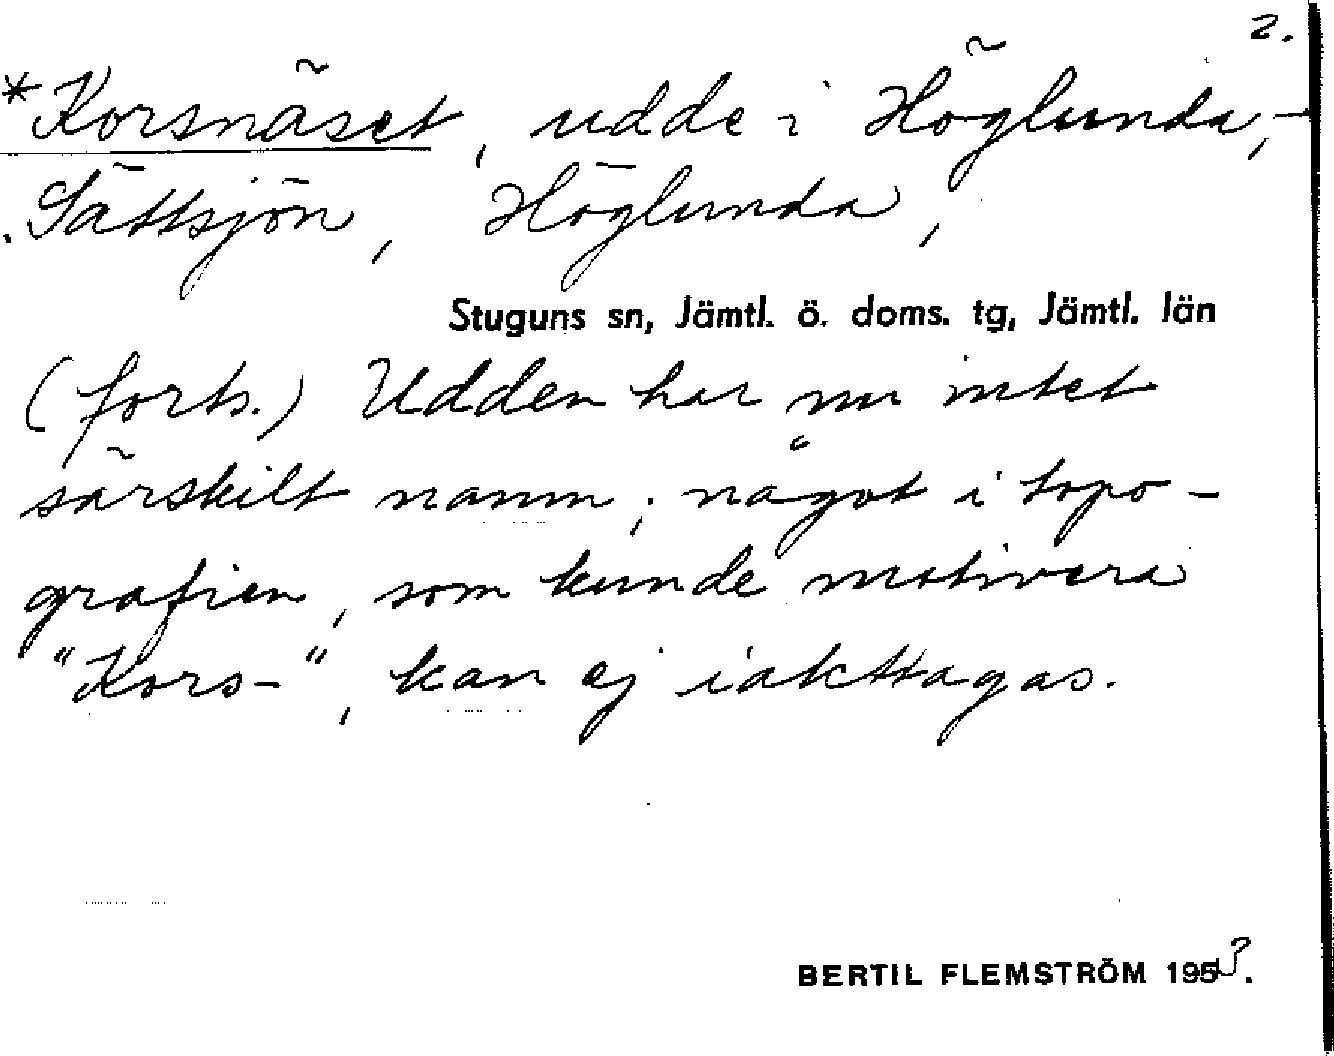 2.
*Korsnäset, udde i Höglunda,-
Sättsjön, Höglunda,
Stuguns sn, Jämtl. ö. doms. tg, Jämtl. län
(forts.) Udden har nu intet
särskilt namn; något i topo-
grafien, som kunde motivera
"Kors-", kan ej iakttagas.
BERTIL FLEMSTRÖM 1953.